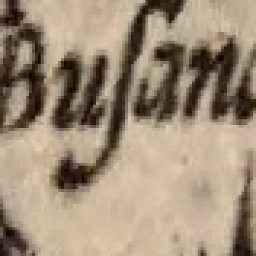 Buſan